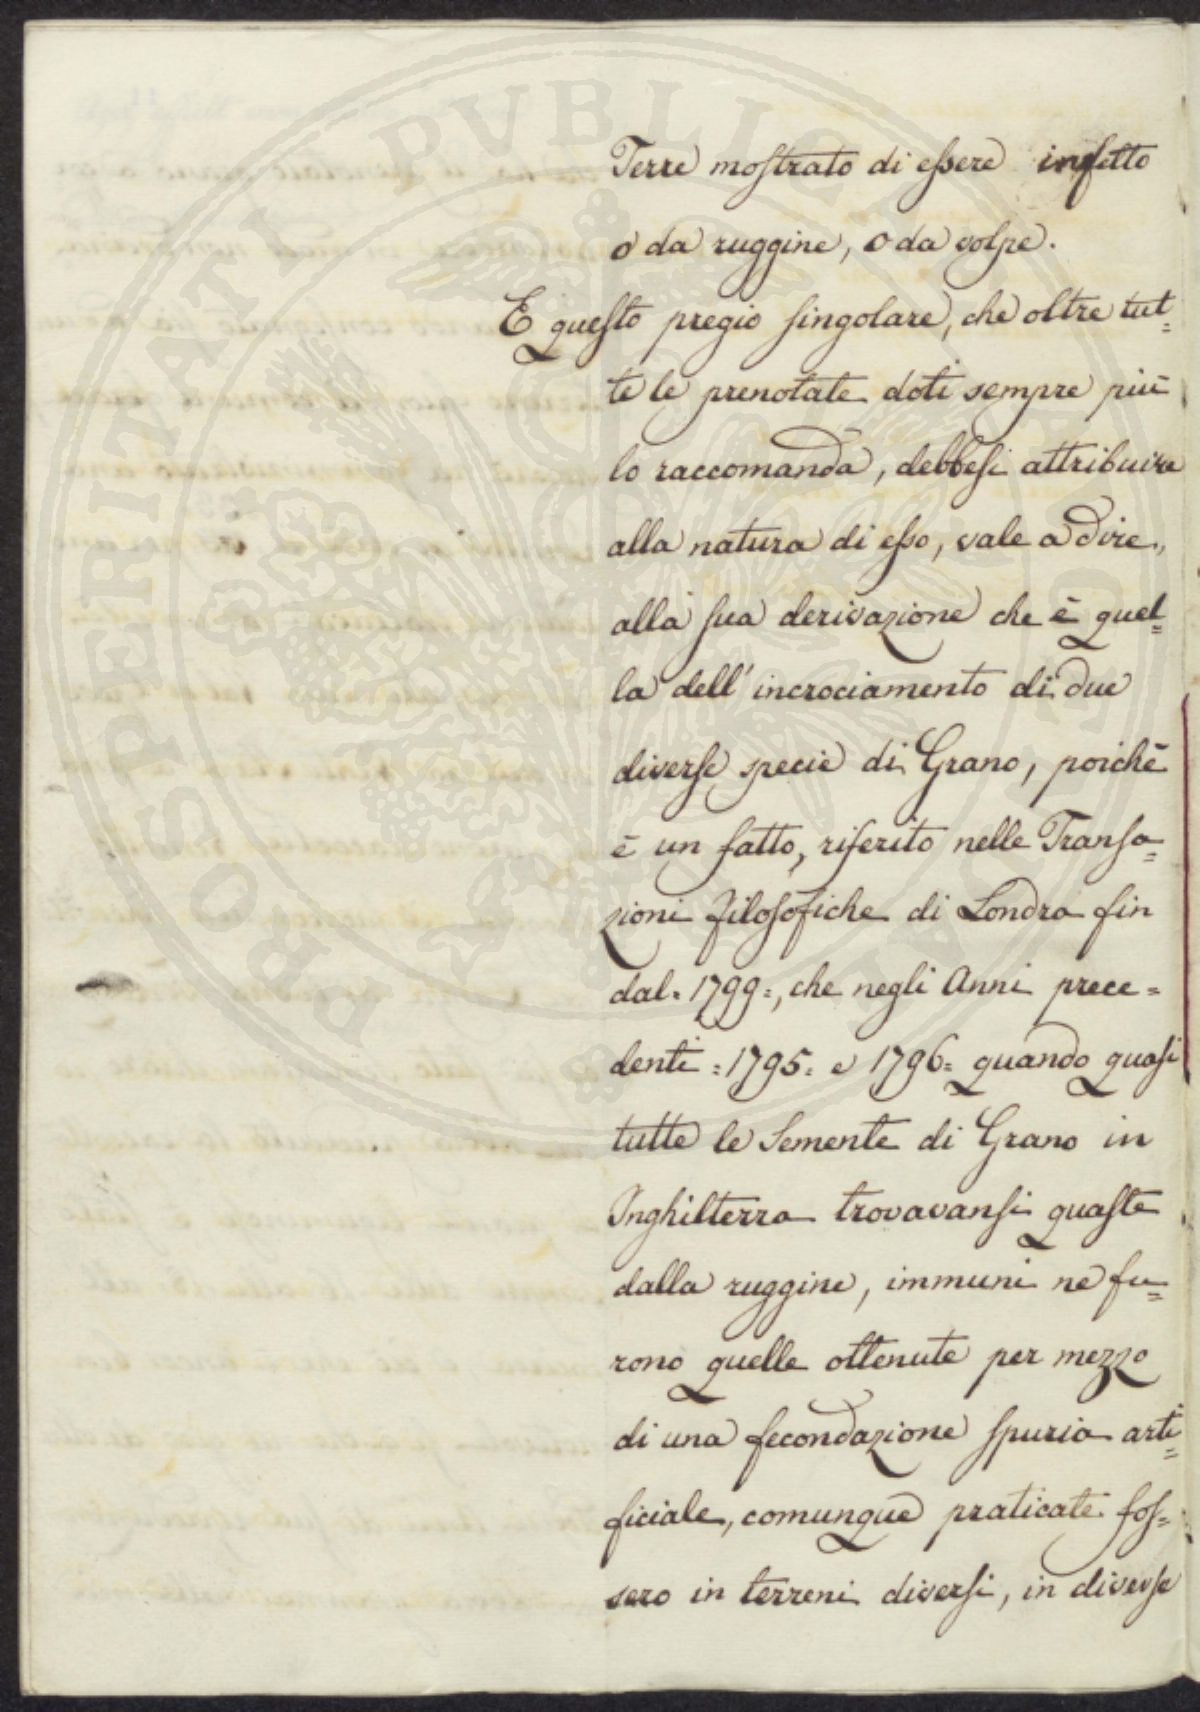 Terre mostrato di essere infetto
o da ruggine, o da volpe.
E questo pregio singolare, che oltre tut=
te le prenotate doti sempre più
lo raccomanda, debbesi attribuire
alla natura di esso, vale a dire,
alla sua derivazione che è quel=
la dell'incrociamento di due
diverse specie di Grano, poichè
è un fatto, riferito nelle Transa=
zioni filosofiche di Londra fin
dal 1799=, che negli Anni prece=
denti =1795= e 1796= quando quasi
tutte le Semente di Grano in
Inghilterra trovavansi guaste
dalla ruggine, immuni ne fu=
rono quelle ottenute per mezzo
di una fecondazione spuria arti=
ficiale, comunque praticate fos=
sero in terreni diversi, in diverse
PROSPERITATI PUBLICAE